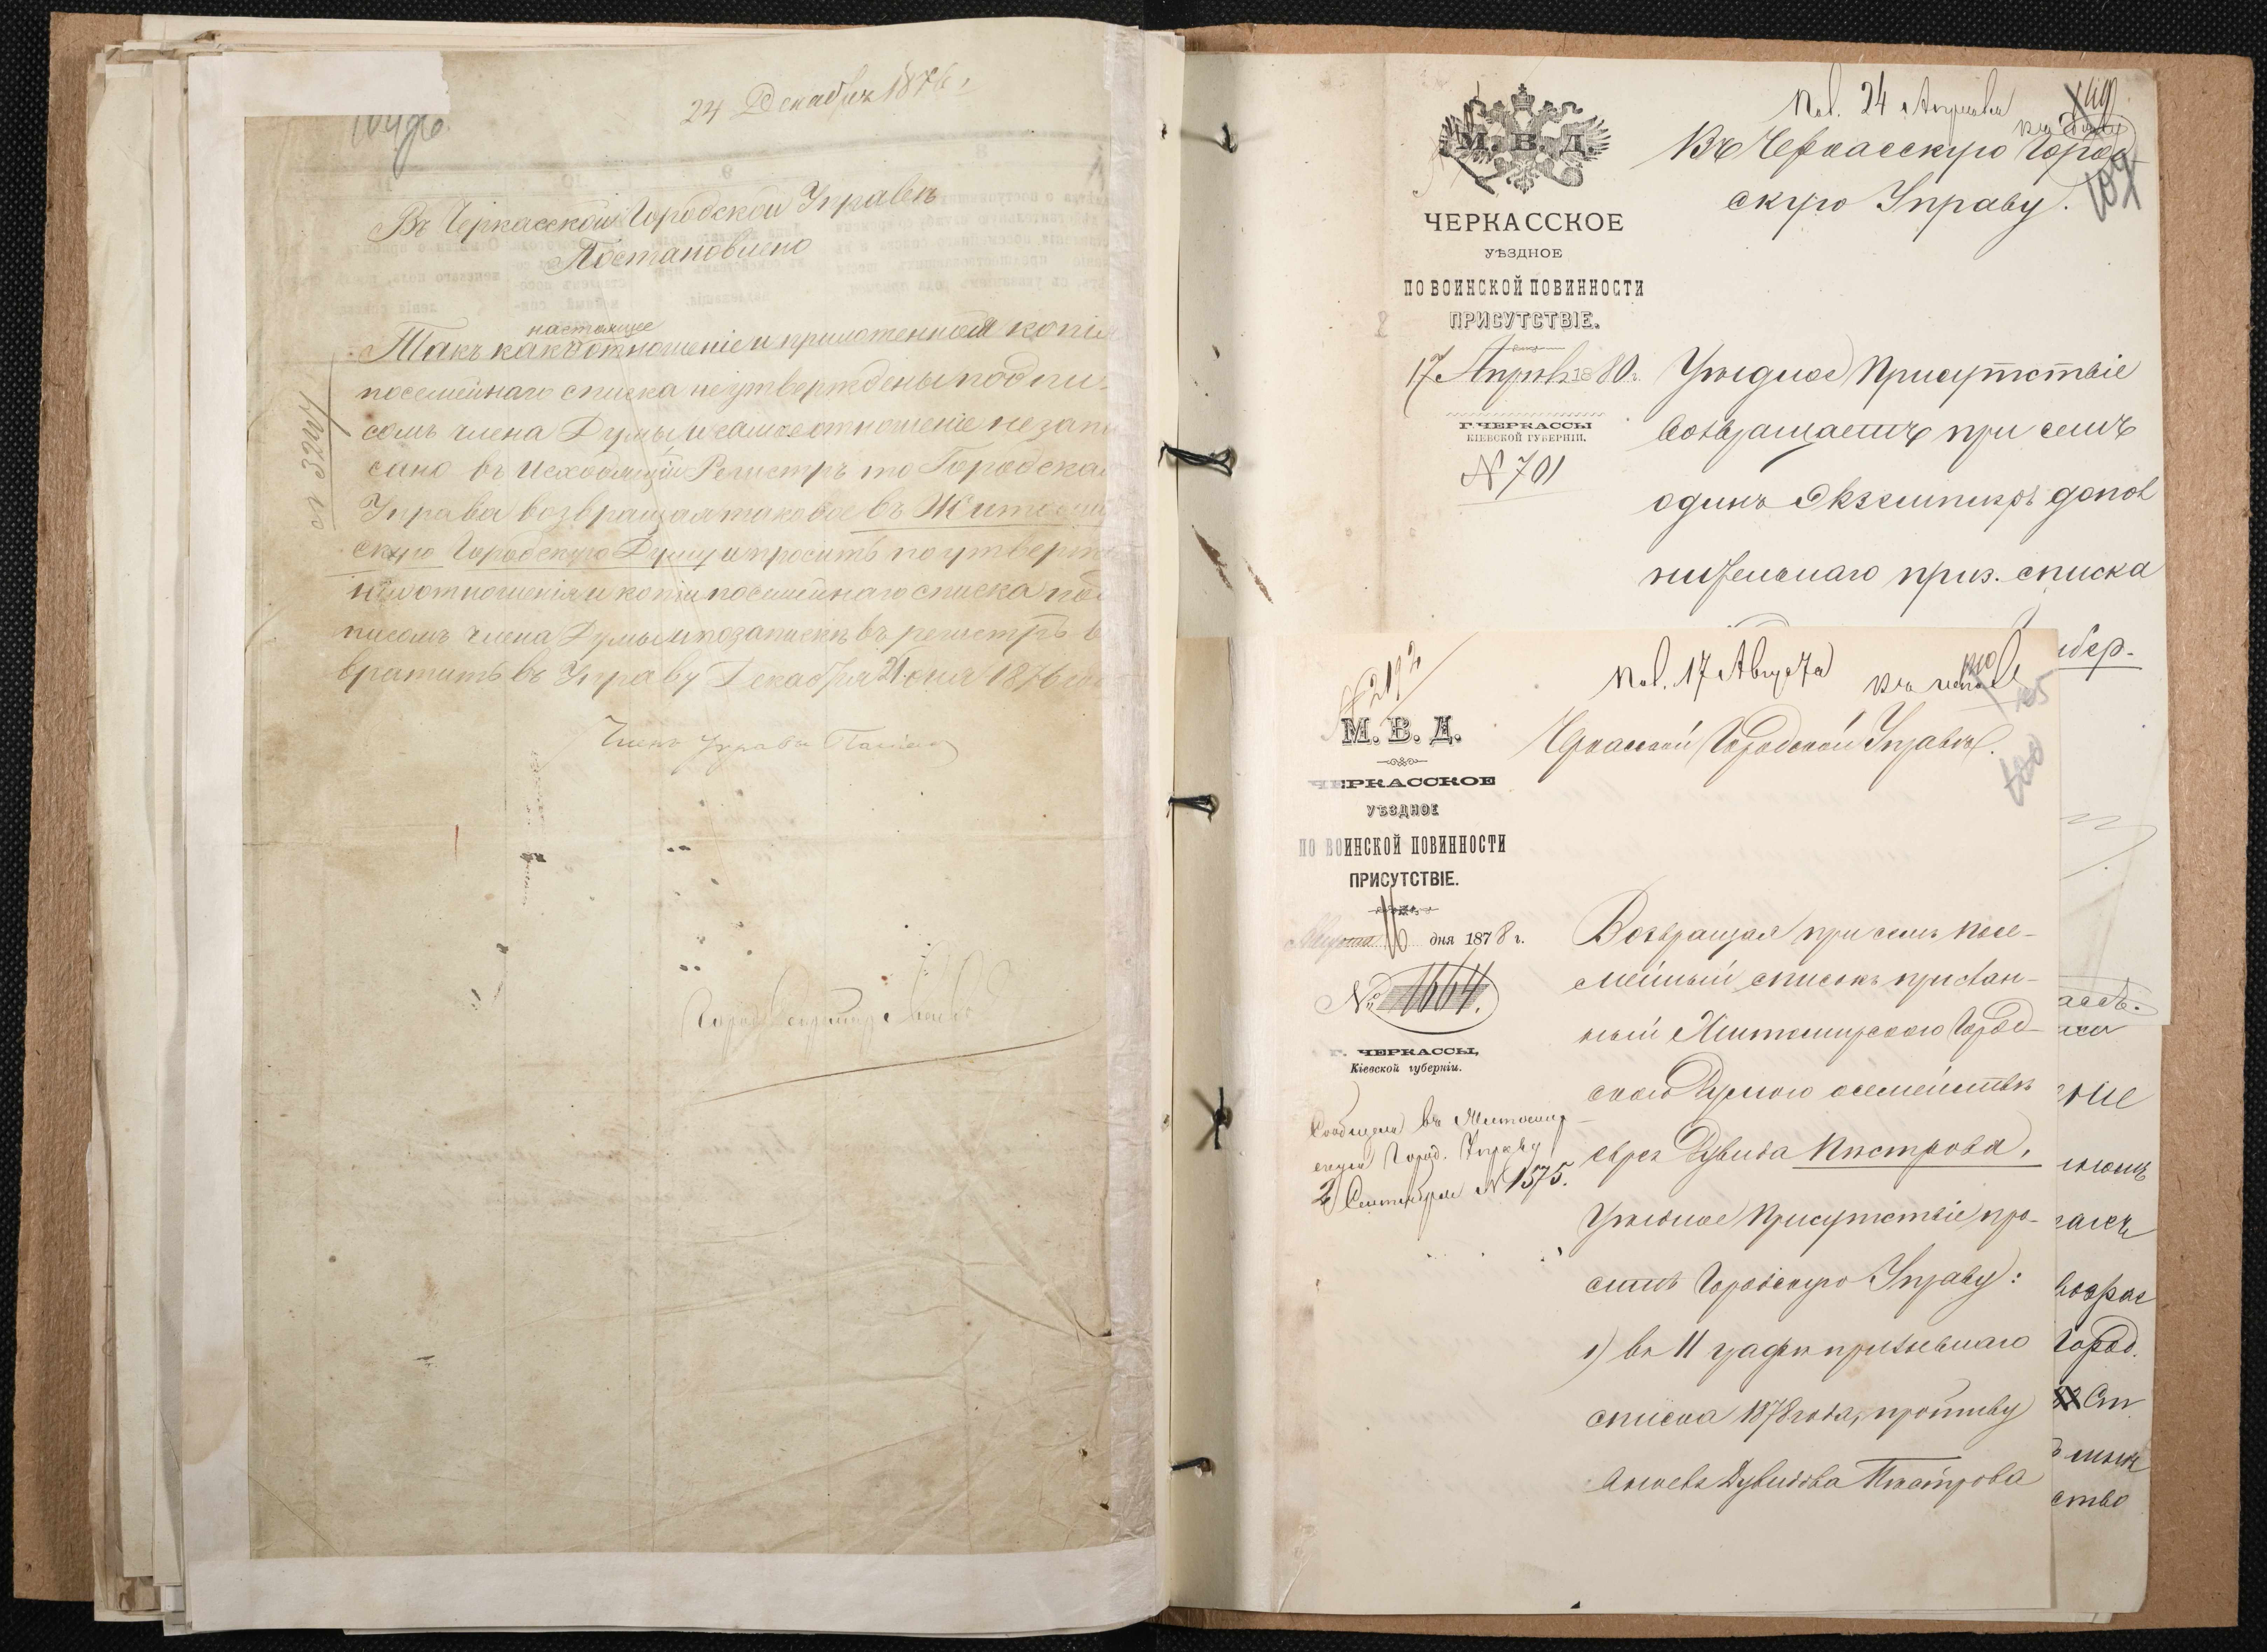 24 Декабря 1876 г.
Въ Черкасской Городской Управѣ
Постановлено
настоящее
Такъ какъ отношеніе и приложенная копія
посемейнаго списка не утверждены подпи-
сомъ члена Думы, и самое отношеніе не запи
сано въ Исходящій Регистръ то Городская
Управа возвращая таковое въ Житомир
скую Городскую Думу и просить по утвержде
ніи отношенія и копіи посемейнаго списка под
писомъ члена Думы и по запискѣ въ регистръ в
вратить въ Управу Декабря 21 дня 1876
Членъ Управы
№ 3244
М. В. Д.
ЧЕРКАССКОЕ
УѢЗДНОЕ
ПО ВОИНСКОЙ ПОВИННОСТИ
ПРИСУТСТВІЕ.
17 Апрѣл 1880 г.
Г. ЧЕРКАССЫ
КІЕВСКОЙ ГУБЕРНІИ.
№ 701
Пол. 24 Апрѣля
Въ Черкасскую Город
скую Управу.
107
Уѣздное Присутствіе
возвращаетъ при семъ
одинъ Экземпляръ допол
нительнаго приз. списка
№ 2192
М. В. Д.
ЧЕРКАССКОЕ
УѢЗДНОЕ
ПО ВОИНСКОЙ ПОВИННОСТИ
ПРИСУТСТВІЕ.
Августа 16 дня 1878 г.
№ 1664.
Г. ЧЕРКАССЫ,
Кіевской губерніи.
Сообщено въ Житомир
скую Город. Управу
2 Сентября № 1575.
Пол. 17 Августа
Черкасской Городской Управѣ.
Возвращая при семъ посе-
мейный списокъ прислан-
ный Житомирскою Город-
скою Думою о семействѣ
еврея Дувида Пистрова,
Уѣздное Присутствіе про-
ситъ Городскую Управу:
1) въ 11 графѣ призывнаго
списка 1878 года, противу
Дувидова Пистрова